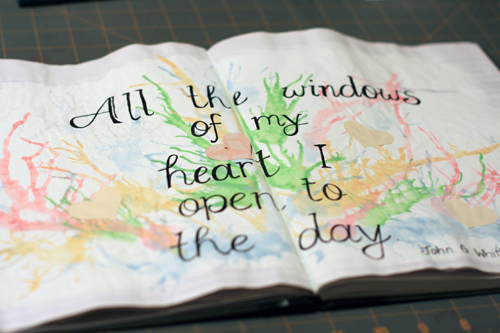 All the windows
of my
heart I
open to
the day
John G Whit